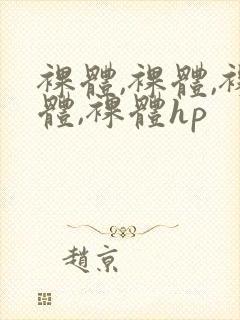 裸體,裸體,裸
體,裸體hp
趙京